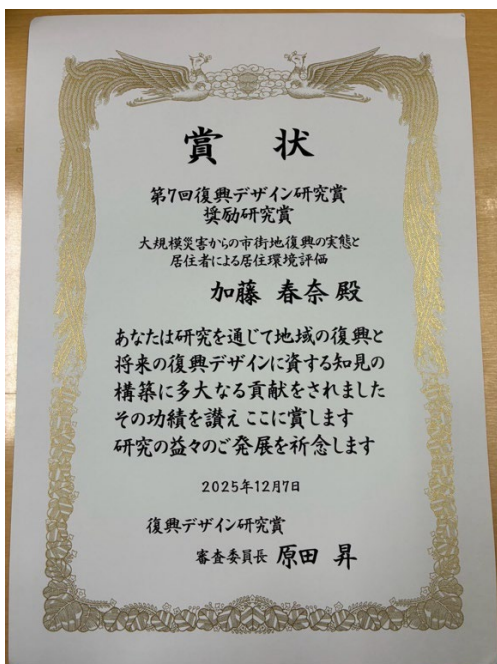 賞 状
第7回復興デザイン研究賞
奨励研究賞
大規模災害からの市街地復興の実態と
居住者による居住環境評価
加藤 春奈 殿
あなたは研究を通じて地域の復興と
将来の復興デザインに資する知見の
構築に多大なる貢献をされました
その功績を讃え ここに賞します
研究の益々のご発展を祈念します
2025年12月7日
復興デザイン研究賞
審査委員長 原田 昇